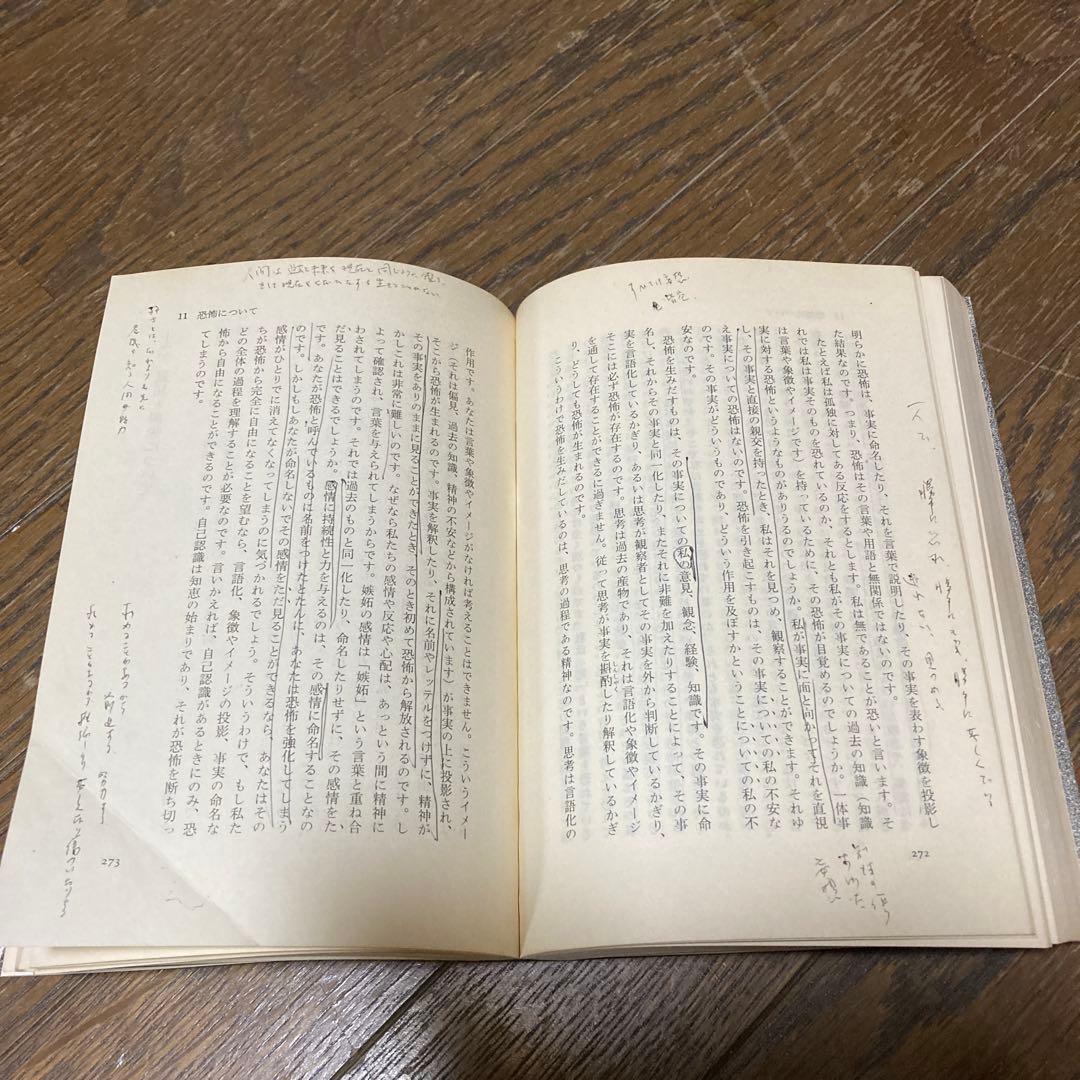 明らかに恐怖は、事実に命名したり、それを言葉で説明したり、その事実を表わす象徴を投影し
た結果なのです。つまり、恐怖はその言葉や用語と無関係ではないのです。
たとえば私は孤独に対してある反応をするとします。私は無であることが恐いと言います。そ
れでは私は事実そのものを恐れているのか、それとも私がその事実についての過去の知識（知識
は言葉や象徴やイメージです）を持っているために、その恐怖が目覚めるのでしょうか。一体事
実に対する恐怖というようなものがありうるのでしょうか。私が事実に面と向かってそれを直視
し、その事実と直接の親交を持ったとき、私はそれを見つめ、観察することができます。それゆ
え事実についての恐怖はないのです。恐怖を引き起こすものは、その事実についての私の不安な
のです。その事実がどういうものであり、どういう作用を及ぼすかということについての私の不
安なのです。
恐怖を生みだすものは、その事実についての私の意見、観念、経験、知識です。その事実に命
名し、それからその事実と同一化したり、またそれに非難を加えたりすることによって、その事
実を言語化しているかぎり、あるいは思考が観察者としてその事実を外から判断しているかぎり、
そこには必ず恐怖が存在するのです。思考は過去の産物であり、それは言語化や象徴やイメージ
を通して存在することができるに過ぎません。従って思考が事実を斟酌したり解釈しているかぎ
り、どうしても恐怖が生まれるのです。
こういうわけで恐怖を生みだしているのは、思考の過程である精神なのです。思考は言語化の
272
11 恐怖について
作用です。あなたは言葉や象徴やイメージがなければ考えることはできません。こういうイメー
ジ（それは偏見、過去の知識、精神の不安などから構成されています）が事実の上に投影され、
そこから恐怖が生まれるのです。事実を解釈したり、それに名前やレッテルをつけずに、精神が
その事実をありのままに見ることができたとき、そのとき初めて恐怖から解放されるのです。し
かしこれは非常に難しいのです。なぜなら私たちの感情や反応や心配は、あっという間に精神に
よって確認され、言葉を与えられてしまうからです。嫉妬の感情は「嫉妬」という言葉と重ね合
わされてしまうのです。それでは過去のものと同一化したり、命名したりせずに、その感情をた
だ見ることはできるでしょうか。感情に持続性と力を与えるのは、その感情に命名することなの
です。あなたが恐怖と呼んでいるものに名前をつけたとたんに、あなたは恐怖を強化してしまう
のです。しかしもしあなたが命名しないでその感情をただ見ることができるなら、あなたはその
感情がひとりでに消えてなくなってしまうのに気づかれるでしょう。そういうわけで、もし私た
ちが恐怖から完全に自由になることを望むなら、言語化、象徴やイメージの投影、事実の命名な
どの全体の過程を理解することが必要なのです。言いかえれば、自己認識があるときにのみ、恐
怖から自由になることができるのです。自己認識は知恵の始まりであり、それが恐怖を断ち切っ
てしまうのです。
273